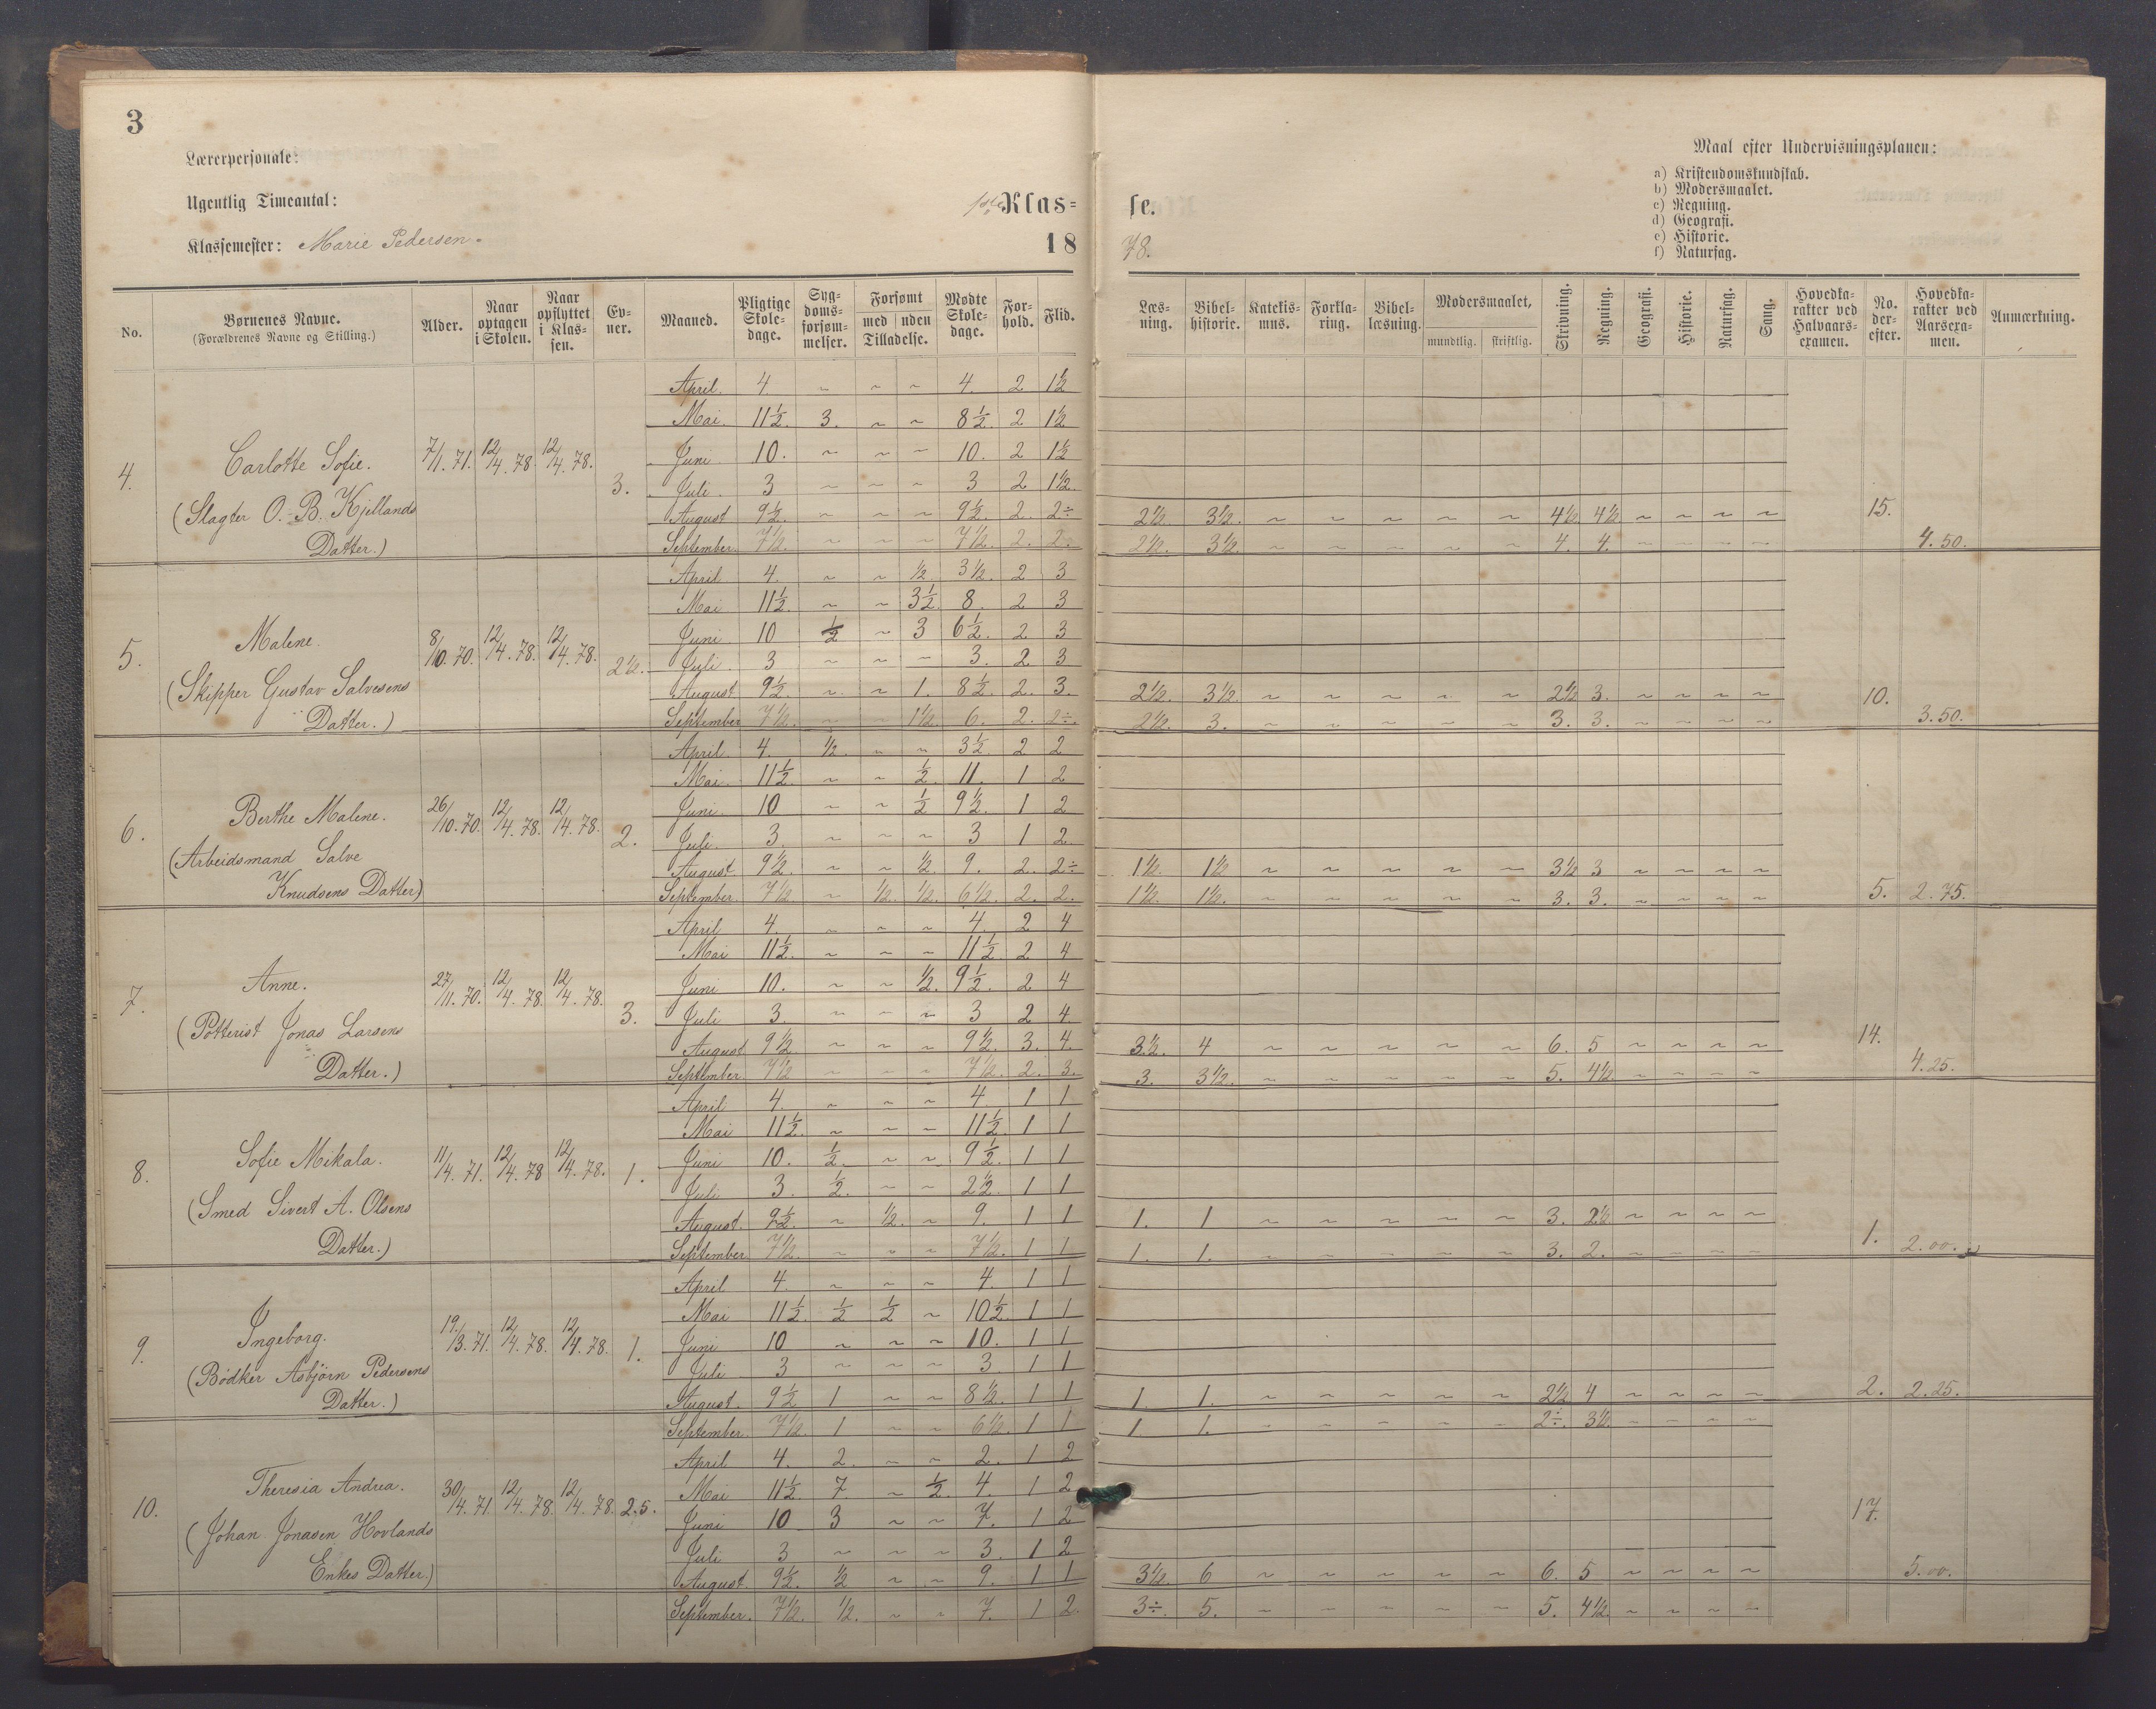 3
Lærerpersonale:
Ugentlig Timeantal:
1ste Klas=
Klassemester: Marie Pedersen.
18
se.
78.
Maal efter Undervisningsplanen:
a) Kristendomskundskab.
b) Modersmaalet.
c) Regning.
d) Geografi.
e) Historie.
f) Naturfag.
No. Børnenes Navne. (Forældrenes Navne og Stilling.) Alder. Naar optagen i Skolen. Naar opflyttet i Klassen. Evner. Maaned. Pligtige Skoledage. Sygdomsforsømmelser. Forsømt med uden Tilladelse. Mødte Skoledage. Forhold. Flid.
Læsning. Bibelhistorie. Katekismus. Forklaring. Bibellæsning. Modersmaalet, mundtlig. skriftlig. Skrivning. Regning. Geografi. Historie. Naturfag. Sang. Hovedkarakter ved Halvaarsexamen. No. derefter. Hovedkarakter ved Aarsexamen. Anmærkning.
4. Carlotte Sofie. (Slagter O. B. Kjellands Datter.) 7/1. 71. 12/4. 78. 12/4. 78. 3.
April. 4. ~ ~ ~ 4. 2 1½
Mai. 11½. 3. ~ ~ 8½. 2 1½
Juni 10. ~ ~ ~ 10. 2 1½
Juli. 3 ~ ~ ~ 3 2 1½.
August 9½. ~ ~ ~ 9½. 2. 2÷ 2½. 3½. ~ ~ ~ ~ ~ 4½ 4½ ~ ~ ~ ~ 15.
September. 7½. ~ ~ ~ 7½. 2. 2. 2½. 3½. ~ ~ ~ ~ ~ 4. 4. ~ ~ ~ ~ 4.50.
5. Malene. (Skipper Gustav Salvesens Datter.) 8/10. 70. 12/4. 78. 12/4. 78. 2½.
April 4. ~ ~ ½. 3½. 2 3
Mai 11½. ~ ~ 3½ 8. 2 3
Juni. 10 ½ ~ 3 6½. 2 3
Juli. 3 ~ ~ ~ 3. 2 3
August 9½. ~ ~ 1. 8½. 2. 3. 2½. 3½. ~ ~ ~ ~ ~ 2½ 3. ~ ~ ~ ~ 10.
September 7½. ~ ~ 1½. 6. 2. 2÷. 2½. 3. ~ ~ ~ ~ ~ 3. 3. ~ ~ ~ ~ 3.50.
6. Berthe Malene. (Arbeidsmand Salve Knudsens Datter) 26/10. 70. 12/4. 78. 12/4. 78. 2.
April. 4. ½. ~ ~ 3½ 2 2
Mai. 11½ ~ ~ ½. 11. 1 2
Juni. 10 ~ ~ ½ 9½. 1 2
Juli. 3. ~ ~ ~ 3 1 2
August 9½. ~ ~ ½. 9. 2. 2÷ 1½. 1½ ~ ~ ~ ~ ~ 3½ 3 ~ ~ ~ ~
September. 7½ ~ ½. ½. 6½. 2. 2. 1½. 1½. ~ ~ ~ ~ ~ 3. 3. ~ ~ ~ ~ 5. 2.75.
7. Anne. (Potterist Jonas Larsens Datter.) 27/11. 70. 12/4. 78. 12/4. 78. 3.
April 4. ~ ~ ~ 4. 2 4
Mai 11½. ~ ~ ~ 11½ 2 4
Juni 10. ~ ~ ½. 9½. 2 4
Juli 3. ~ ~ ~ 3 2 4.
August 9½. ~ ~ ~ 9½. 3. 4. 3½. 4 ~ ~ ~ ~ ~ 6. 5 ~ ~ ~ ~ 14.
September. 7½ ~ ~ ~ 7½. 2. 3. 3. 3½. ~ ~ ~ ~ ~ 5. 4½. ~ ~ ~ ~ 4.25.
8. Sofie Mikala. (Smed Sivert A. Olsens Datter.) 11/4. 71. 12/4. 78 12/4. 78. 1.
April 4. ~ ~ ~ 4. 1 1
Mai 11½. ~ ~ ~ 11½. 1 1
Juni 10. ½. ~ ~ 9½. 1 1
Juli 3. ½. ~ ~ 2½. 1 1
August. 9½. ~ ½. ~ 9. 1 1 1. 1 ~ ~ ~ ~ ~ 3. 2½ ~ ~ ~ ~ 1.
September 7½. ~ ~ ~ 7½. 1 1 1. 1. ~ ~ ~ ~ ~ 3. 2. ~ ~ ~ ~ 2.00.
9. Ingeborg. (Bødker Asbjørn Pedersens Datter.) 19./3. 71. 12/4. 78. 12/4. 78. 1.
April 4. ~ ~ ~ 4. 1 1
Mai 11½ ½ ½ ~ 10½. 1 1
Juni 10 ~ ~ ~ 10. 1 1
Juli 3 ~ ~ ~ 3. 1 1
August. 9½ 1 ~ ~ 8½. 1 1 1. 1. ~ ~ ~ ~ ~ 2½ 4 ~ ~ ~ ~ 2. 2.25.
September. 7½. 1 ~ ~ 6½. 1 1 1 1. ~ ~ ~ ~ ~ 2÷. 3½ ~ ~ ~ ~
10. Theresia Andrea. (Johan Jonasen Hovlands Enkes Datter.) 30/4. 71. 12/4. 78. 12/4. 78. 2.5.
April 4. 2. ~ ~ 2. 1 2
Mai 11½. 7. ~ ½. 4. 1 2
Juni 10 3 ~ ~ 7. 1 2
Juli 3 ~ ~ ~ 3. 1 2
August. 9½. ½ ~ ~ 9. 1 1 3½. 6 ~ ~ ~ ~ ~ 6. 5 ~ ~ ~ ~ 17. 5.00.
September. 7½. ½. ~ ~ 7. 1 2. 3÷. 5. ~ ~ ~ ~ ~ 5. 4½. ~ ~ ~ ~